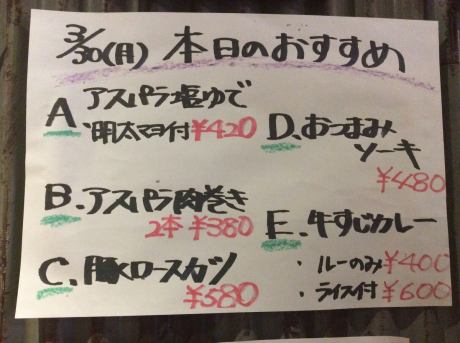 3/30(月) 本日のおすすめ
A アスパラ塩ゆで
明太マヨ付 ¥420
B. アスパラ肉巻き
2本 ¥380
C. 豚ロースカツ
¥580
D. おつまみ
ソーキ
¥480
E. 牛すじカレー
・ルーのみ ¥400
・ライス付 ¥600